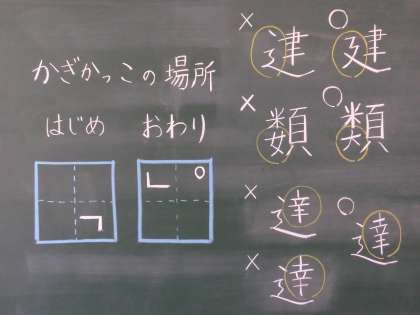 かぎかっこの場所
はじめ おわり
「
」。
× ○ 建
× 数 ○ 類
× 達 ○ 達
× 達